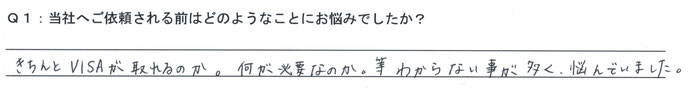 Q1:当社へご依頼される前はどのようなことにお悩みでしたか?
きちんとVISAが取れるのか。何が必要なのか。等わからない事が多く、悩んでいました。